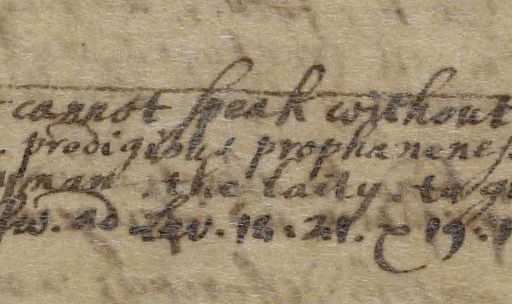 cannot speak without
prodigious prophanenes
man. the laity. to
ad Lev. 18. 21. & 19.